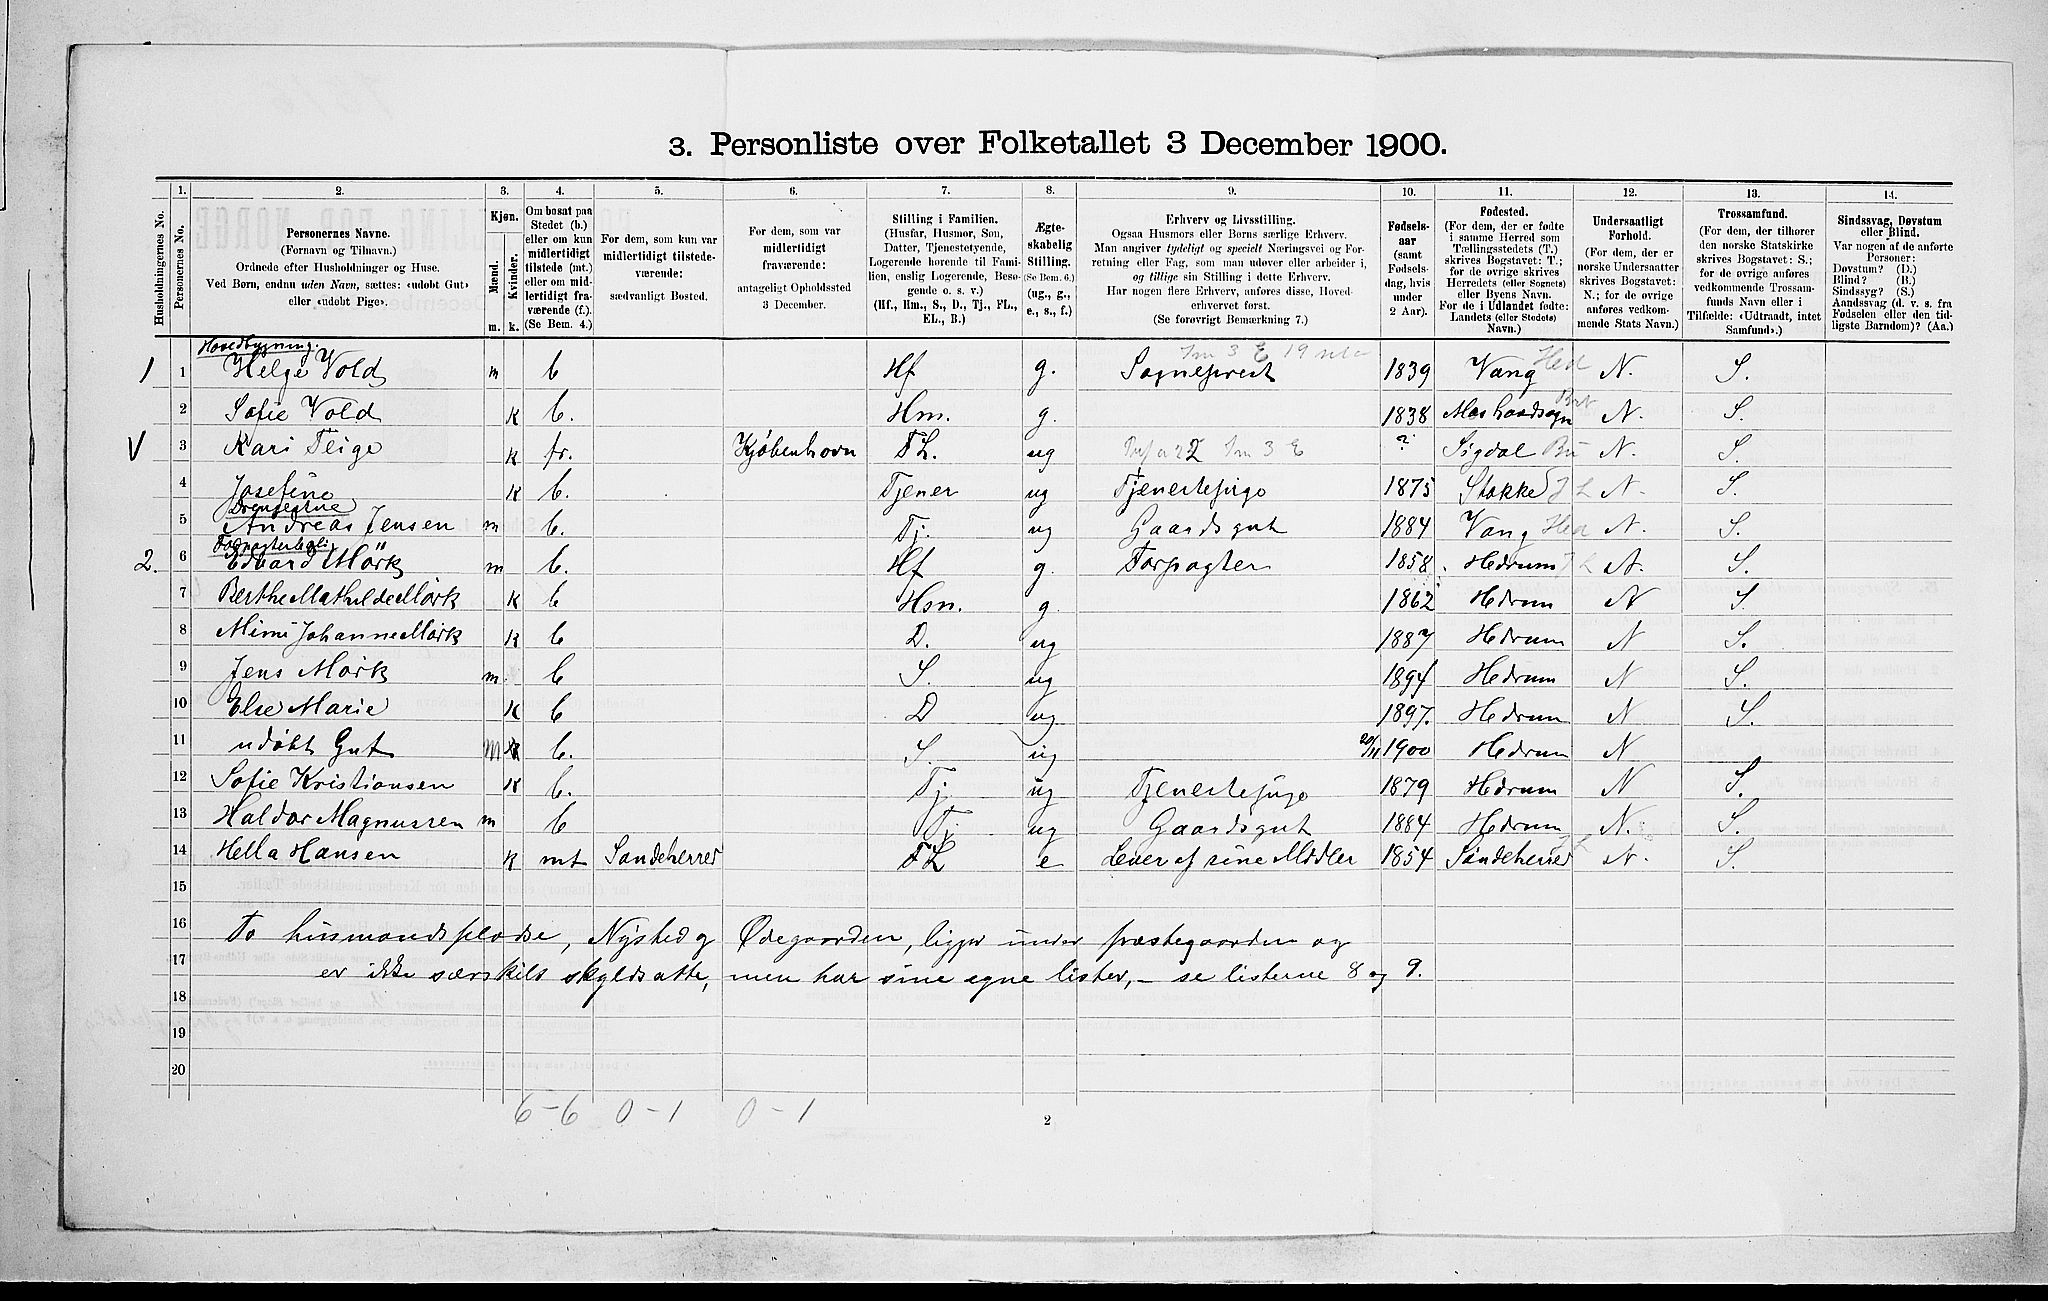 3. Personliste over Folketallet 3 December 1900.
1. 2. 3. 4. 5. 6. 7. 8. 9. 10. 11. 12. 13. 14.
Husholdningernes No.
Personernes No.
Personernes Navne.
(Fornavn og Tilnavn.)
Ordnede efter Husholdninger og Huse.
Ved Børn, endnu uden Navn, sættes: «udøbt Gut»
eller «udøbt Pige».
Kjøn.
Mænd. Kvinder.
m. k.
Om bosat paa
Stedet (b.)
eller om kun
midlertidigt
tilstede (mt.)
eller om mid-
lertidigt fra-
værende (f.).
(Se Bem. 4.)
For dem, som kun var
midlertidigt tilstede-
værende:
sædvanligt Bosted.
For dem, som var
midlertidigt
fraværende:
antageligt Opholdssted
3 December.
Stilling i Familien.
(Husfar, Husmor, Søn,
Datter, Tjenestetyende,
Logerende hørende til Fami-
lien, enslig Logerende, Besø-
gende o. s. v.)
(Hf., Hm., S., D., Tj., FL.,
EL., B.)
Ægte-
skabelig
Stilling.
(Se Bem. 6.)
(ug., g.,
e., s., f.)
Erhverv og Livsstilling.
Ogsaa Husmors eller Børns særlige Erhverv.
Man angiver tydeligt og specielt Næringsvei og For-
retning eller Fag, som man udøver eller arbeider i,
og tillige sin Stilling i dette Erhverv.
Har nogen flere Erhverv, anføres disse, Hoved-
erhvervet først.
(Se forøvrigt Bemærkning 7.)
Fødsels-
aar
(samt
Fødsels-
dag, hvis
under
2 Aar).
Fødested.
(For dem, der er fødte
i samme Herred som
Tællingsstedets (T.)
skrives Bogstavet: T.;
for de øvrige skrives
Herredets (eller Sognets)
eller Byens Navn.
For de i Udlandet fødte:
Landets (eller Stedets)
Navn.)
Undersaatligt
Forhold.
(For dem, der er
norske Undersaatter
skrives Bogstavet:
N.; for de øvrige
anføres vedkom-
mende Stats Navn.)
Trossamfund.
(For dem, der tilhører
den norske Statskirke
skrives Bogstavet: S.;
for de øvrige anføres
vedkommende Trossam-
funds Navn eller i
Tilfælde: «Udtraadt, intet
Samfund».)
Sindssvag, Døvstum
eller Blind.
Var nogen af de anførte
Personer:
Døvstum? (D.)
Blind? (B.)
Sindssyg? (S.)
Aandssvag (d. v. s. fra
Fødselen eller den tid-
ligste Barndom)? (Aa.)
Hovedbygning.
1 1 Helge Vold m b Hf g. Sogneprest 1839 Vang Hed N. S.
2 Sofie Vold k b. Hm. g. 1838 N. S.
V 3 Kari Teige k fr. Kjøbenhavn FL. ug ? Sigdal Bu N. S.
4 Josefine k b. Tjener ug Tjenestepige 1875 Stokke J L N. S.
5 Andreas Jensen m b. Tj. ug Gaardsgut 1884 Vang Hed N. S.
2. 6 Edvard Mörk m b. Hf g. Forpagter 1858 Hedrum J L N. S.
7 Berthe Mathilde Mörk k b Hm. g. 1862 Hedrum N S
8 Mimi Johanne Mörk k b D. ug 1887 Hedrum N S.
9 Jens Mörk m. b S. ug 1894 Hedrum N S.
10 Else Marie k b D ug 1897. Hedrum N S.
11 udøbt Gut m b. S. ug 20/11 1900 Hedrum N
12 Sofie Kristiansen k b. Tj. ug Tjenestepige 1879 Hedrum N S.
13 Haldor Magnussen m b Tj ug Gaardsgut 1884 Hedrum N. S.
14 Hella Hansen k mt Sandeherred FL e Lever af sine Midler 1854 Sandeherred N. S.
15
16 To husmandspladse, Nysted og Ødegaarden, ligger under præstegaarden og
17 er ikke særskilt skyldsatte, men har sine egne lister, – se listerne 8 og 9.
18
19
20
6–6 0–1 0–1
2